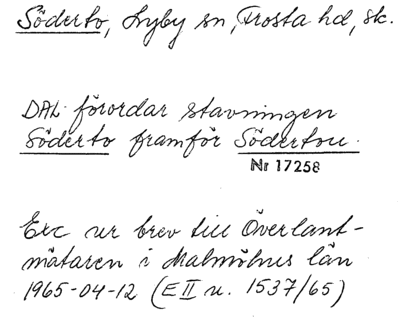 Söderto, Lyby sn, Frosta hd, sk.
DAL förordar stavningen
Söderto framför Södertou.
Nr 17258
Exc ur brev till Överlant-
mätaren i Malmöhus län
1965-04-12 (E II u. 1537/65)